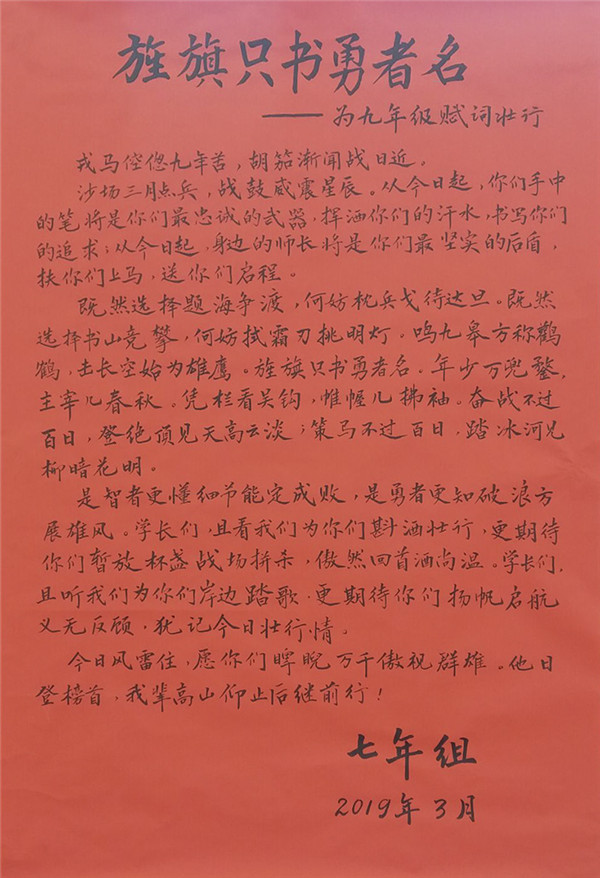 旌旗只书勇者名
——为九年级赋词壮行
戎马倥偬九年苦，胡笳渐闻战日近。
沙场三月点兵，战鼓威震星辰。从今日起，你们手中
的笔将是你们最忠诚的武器，挥洒你们的汗水，书写你们
的追求；从今日起，身边的师长将是你们最坚实的后盾，
扶你们上马，送你们启程。
既然选择题海争渡，何妨枕兵戈待达旦。既然
选择书山竞攀，何妨拭霜刀挑明灯。鸣九皋方称鹤
鹤，击长空始为雄鹰。旌旗只书勇者名．年少万兜鍪，
主宰几春秋。凭栏看吴钩，帷幄几拂袖。奋战不过
百日，登绝顶见天高云淡；策马不过百日．踏冰河见
柳暗花明。
是智者更懂细节能定成败，是勇者更知破浪方
展雄风。学长们，且看我们为你们斟酒壮行，更期待
你们暂放杯盏战场拼杀，傲然回首酒尚温。学长们，
且听我们为你们岸边踏歌．更期待你们扬帆启航
义无反顾，犹记今日壮行情。
今日风雷住，愿你们睥睨万千傲视群雄。他日
登榜首，我辈高山仰止后继前行！
七年组
2019年3月